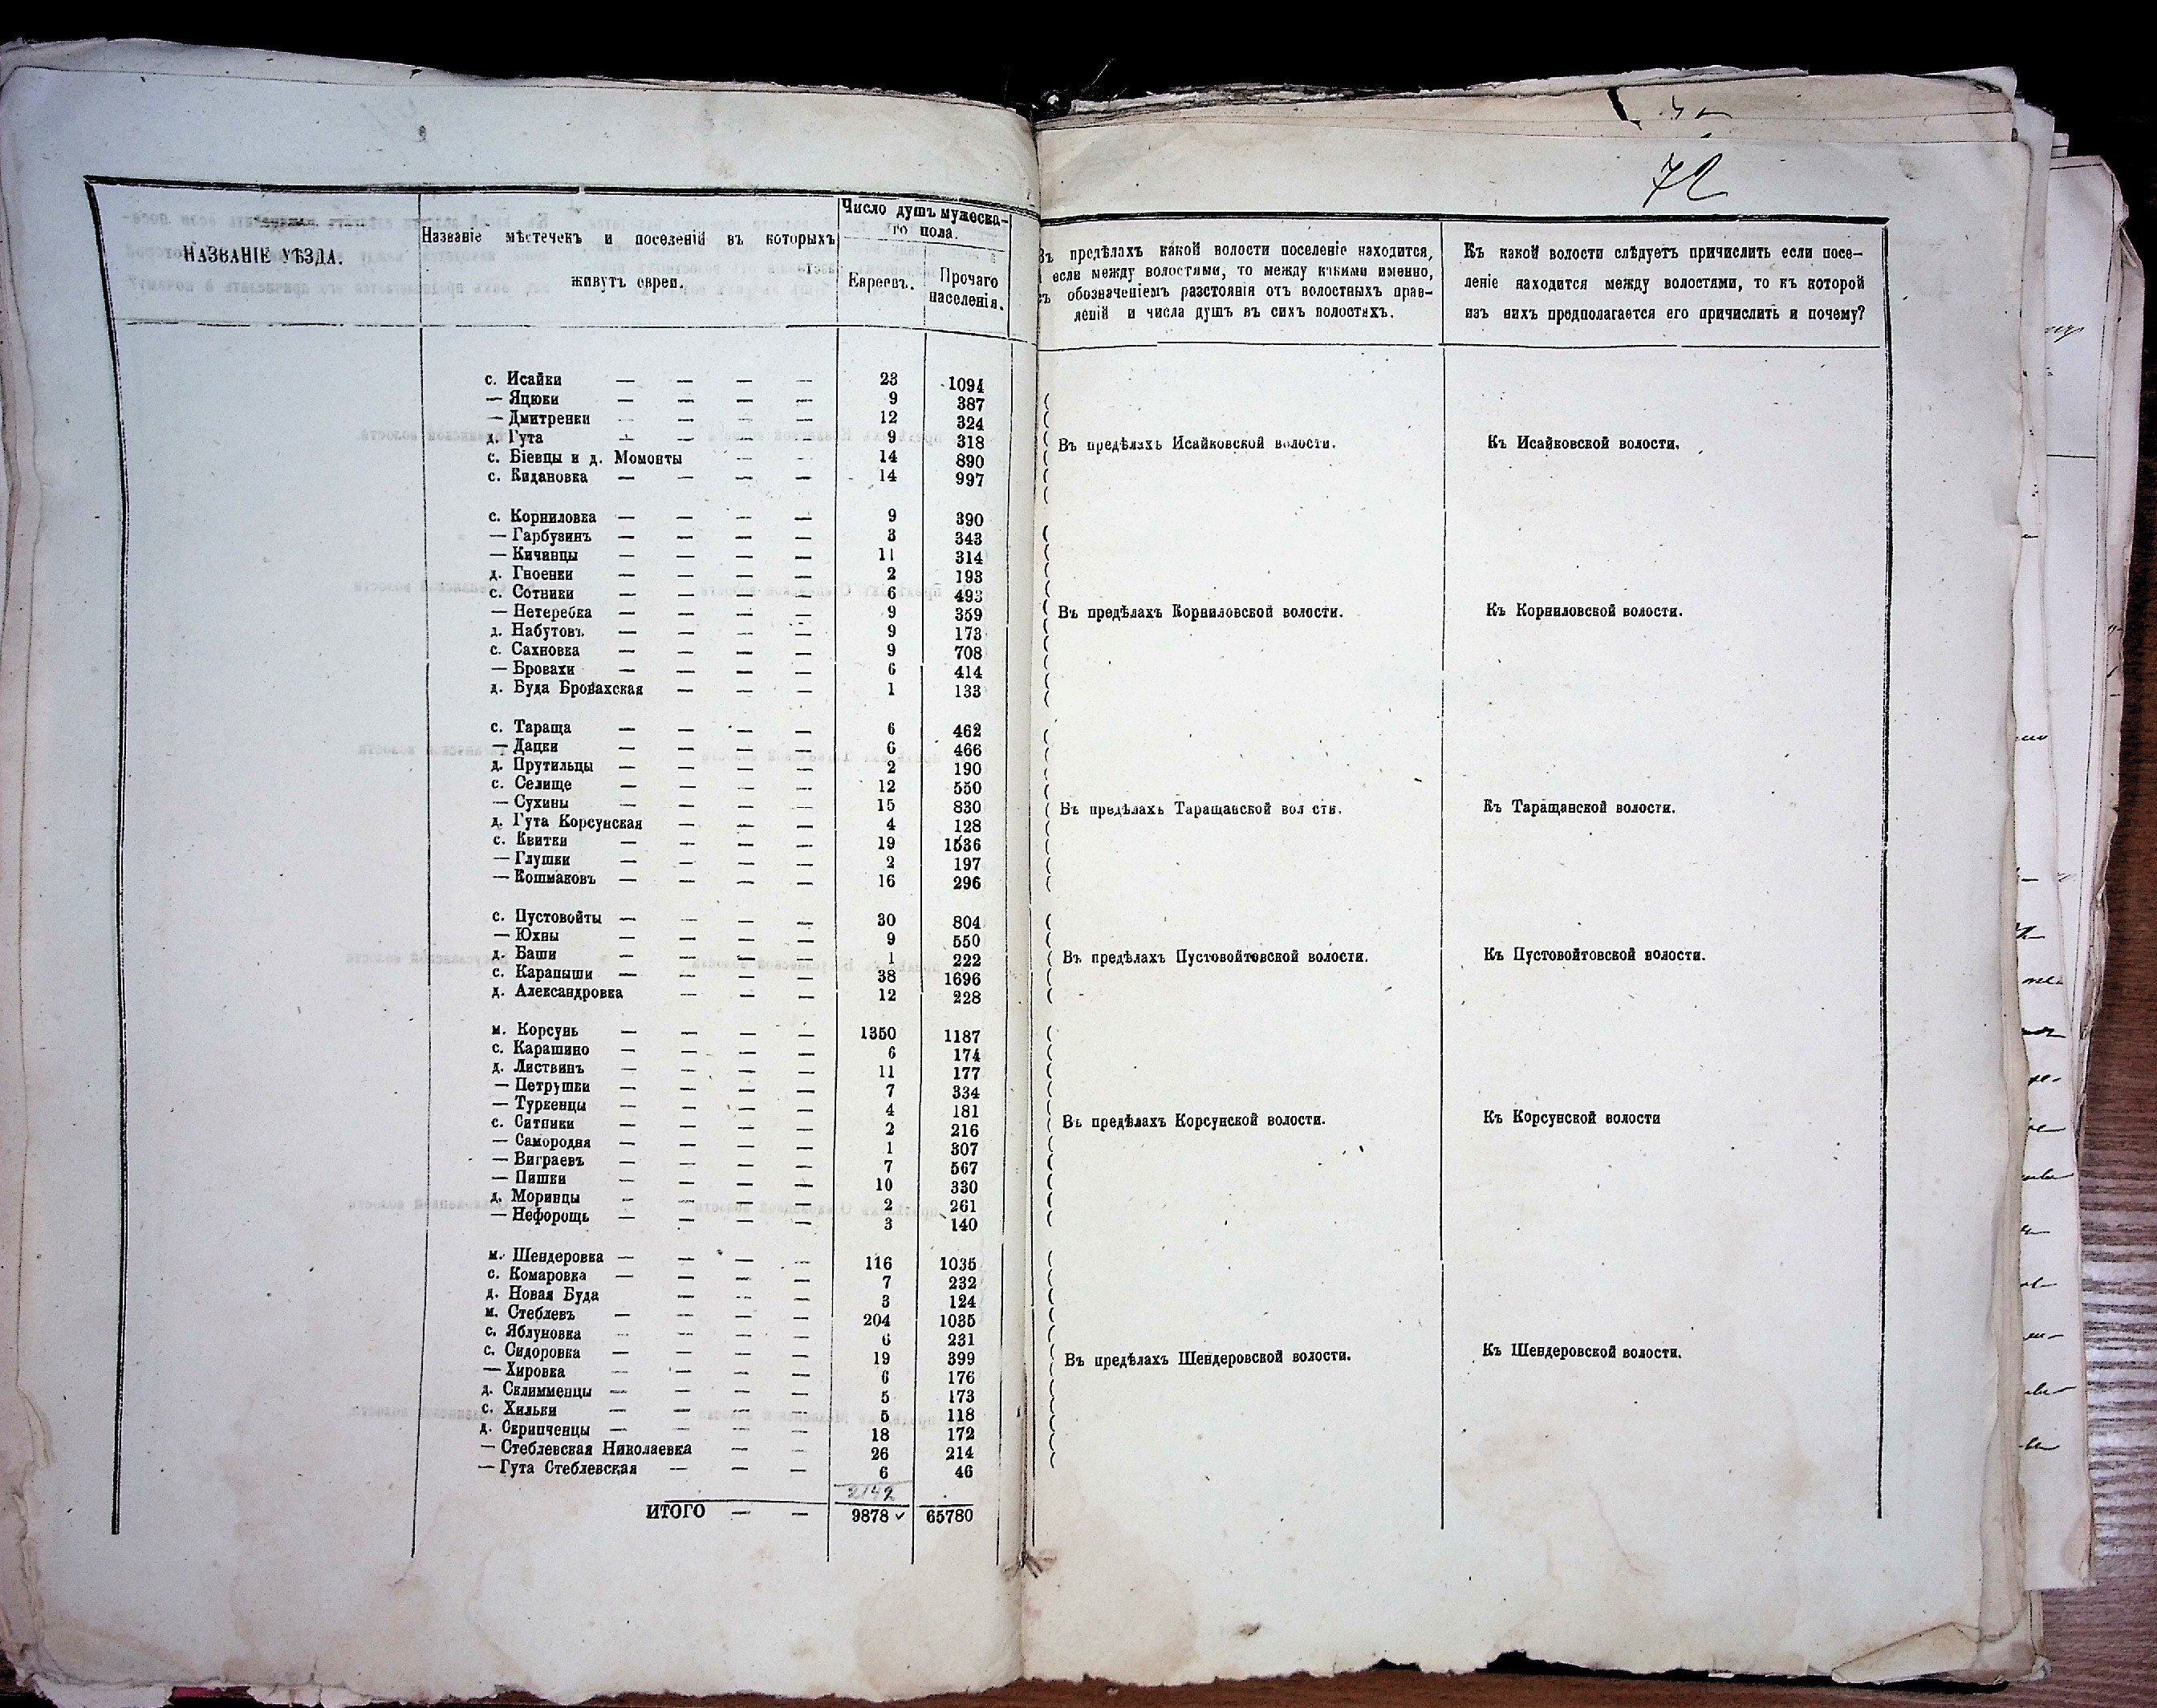 72
НАЗВАНІЕ УѢЗДА.
Названіе мѣстечекъ и поселеній въ которыхъ
живутъ евреи.
Число душъ мужеска-
го пола.
Евреевъ.
Прочаго
населенія.
Въ предѣлахъ какой волости поселеніе находится,
если между волостями, то между какими именно,
съ обозначеніемъ разстоянія отъ волостныхъ прав-
леній и числа душъ въ сихъ волостяхъ.
Къ какой волости слѣдуетъ причислить если посе-
леніе находится между волостями, то къ которой
изъ нихъ предполагается его причислить и почему?
с. Исайки — — — — 23 1094
— Яцюки — — — — 9 387
— Дмитренки — — — — 12 324
д. Гута — — — — 9 318
с. Біевцы и д. Момонты — — 14 890
с. Кидановка — — — — 14 997
Въ предѣлахъ Исайковской волости.
Къ Исайковской волости.
с. Корниловка — — — — 9 390
— Гарбузинъ — — — — 3 343
— Кичинцы — — — — 11 314
д. Гноенки — — — — 2 193
с. Сотники — — — — 6 493
— Нетеребка — — — — 9 359
д. Набутовъ — — — — 9 173
с. Сахновка — — — — 9 708
— Бровахи — — — — 6 414
д. Буда Бровахская — — — 1 133
Въ предѣлахъ Корниловской волости.
Къ Корниловской волости.
с. Тараща — — — — 6 462
— Дацки — — — — 6 466
д. Прутильцы — — — — 2 190
с. Селище — — — — 12 550
— Сухины — — — — 15 830
д. Гута Корсунская — — — 4 128
с. Квитки — — — — 19 1536
— Глушки — — — — 2 197
— Кошмаковъ — — — — 16 296
Въ предѣлахъ Таращанской вол сти.
Къ Таращанской волости.
с. Пустовойты — — — — 30 804
— Юхны — — — — 9 550
д. Баши — — — — 1 222
с. Карапыши — — — — 38 1696
д. Александровка — — — 12 228
Въ предѣлахъ Пустовойтовской волости.
Къ Пустовойтовской волости.
м. Корсунь — — — — 1350 1187
с. Карашино — — — — 6 174
д. Листвинъ — — — — 11 177
— Петрушки — — — — 7 334
— Туркенцы — — — — 4 181
с. Ситники — — — — 2 216
— Самородня — — — — 1 307
— Виграевъ — — — — 7 567
— Пишки — — — — 10 330
д. Моринцы — — — — 2 261
— Нефорощь — — — — 3 140
Въ предѣлахъ Корсунской волости.
Къ Корсунской волости
м. Шендеровка — — — — 116 1035
с. Комаровка — — — — 7 232
д. Новая Буда — — — 3 124
м. Стеблевъ — — — — 204 1035
с. Яблуновка — — — — 6 231
с. Сидоровка — — — — 19 399
— Хировка — — — — 6 176
д. Склимменцы — — — — 5 173
с. Хильки — — — — 5 118
д. Скрипченцы — — — — 18 172
— Стеблевская Николаевка — — 26 214
— Гута Стеблевская — — — 6 46
Въ предѣлахъ Шендеровской волости.
Къ Шендеровской волости.
2142
ИТОГО — — 9878 ✓ 65780